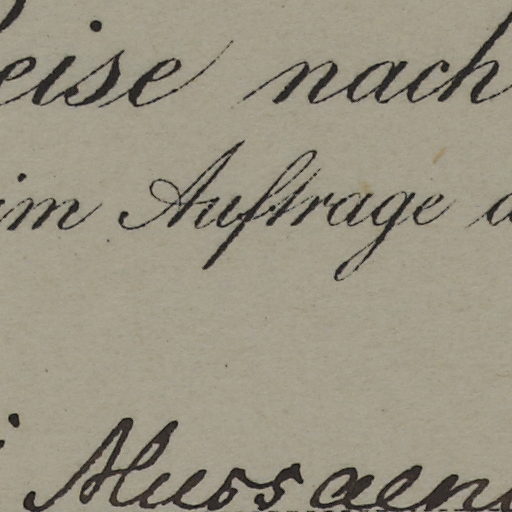 eise nach
im Auftrage d
Mussaend